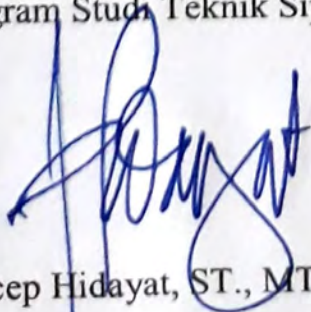 gram Studi Teknik Si
cep Hidayat, ST., MT